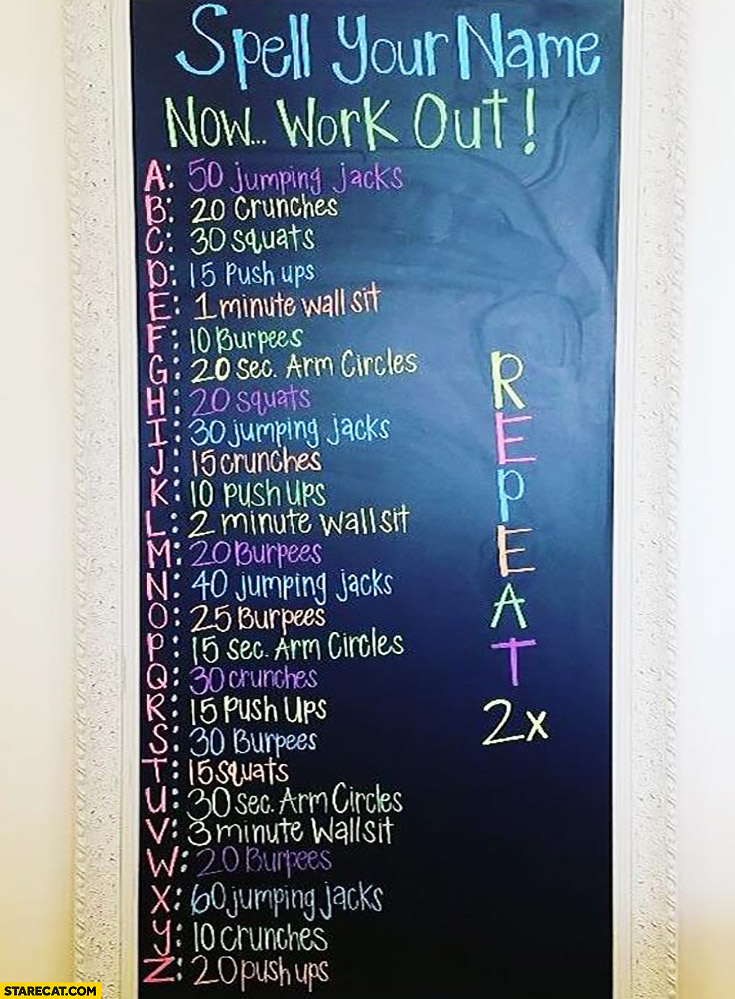 Spell Your Name
Now... Work Out!
A: 50 jumping jacks
B: 20 Crunches
C: 30 squats
D: 15 Push ups
E: 1 minute wall sit
F: 10 Burpees
G: 20 sec. Arm Circles
H: 20 squats
I: 30 jumping jacks
J: 15 crunches
K: 10 push ups
L: 2 minute wall sit
M: 20 Burpees
N: 40 jumping jacks
O: 25 Burpees
P: 15 sec. Arm Circles
Q: 30 crunches
R: 15 Push Ups
S: 30 Burpees
T: 15 squats
U: 30 sec. Arm Circles
V: 3 minute Wall sit
W: 20 Burpees
X: 60 jumping jacks
y: 10 crunches
Z: 20 push ups
REPEAT
2x
STARECAT.COM